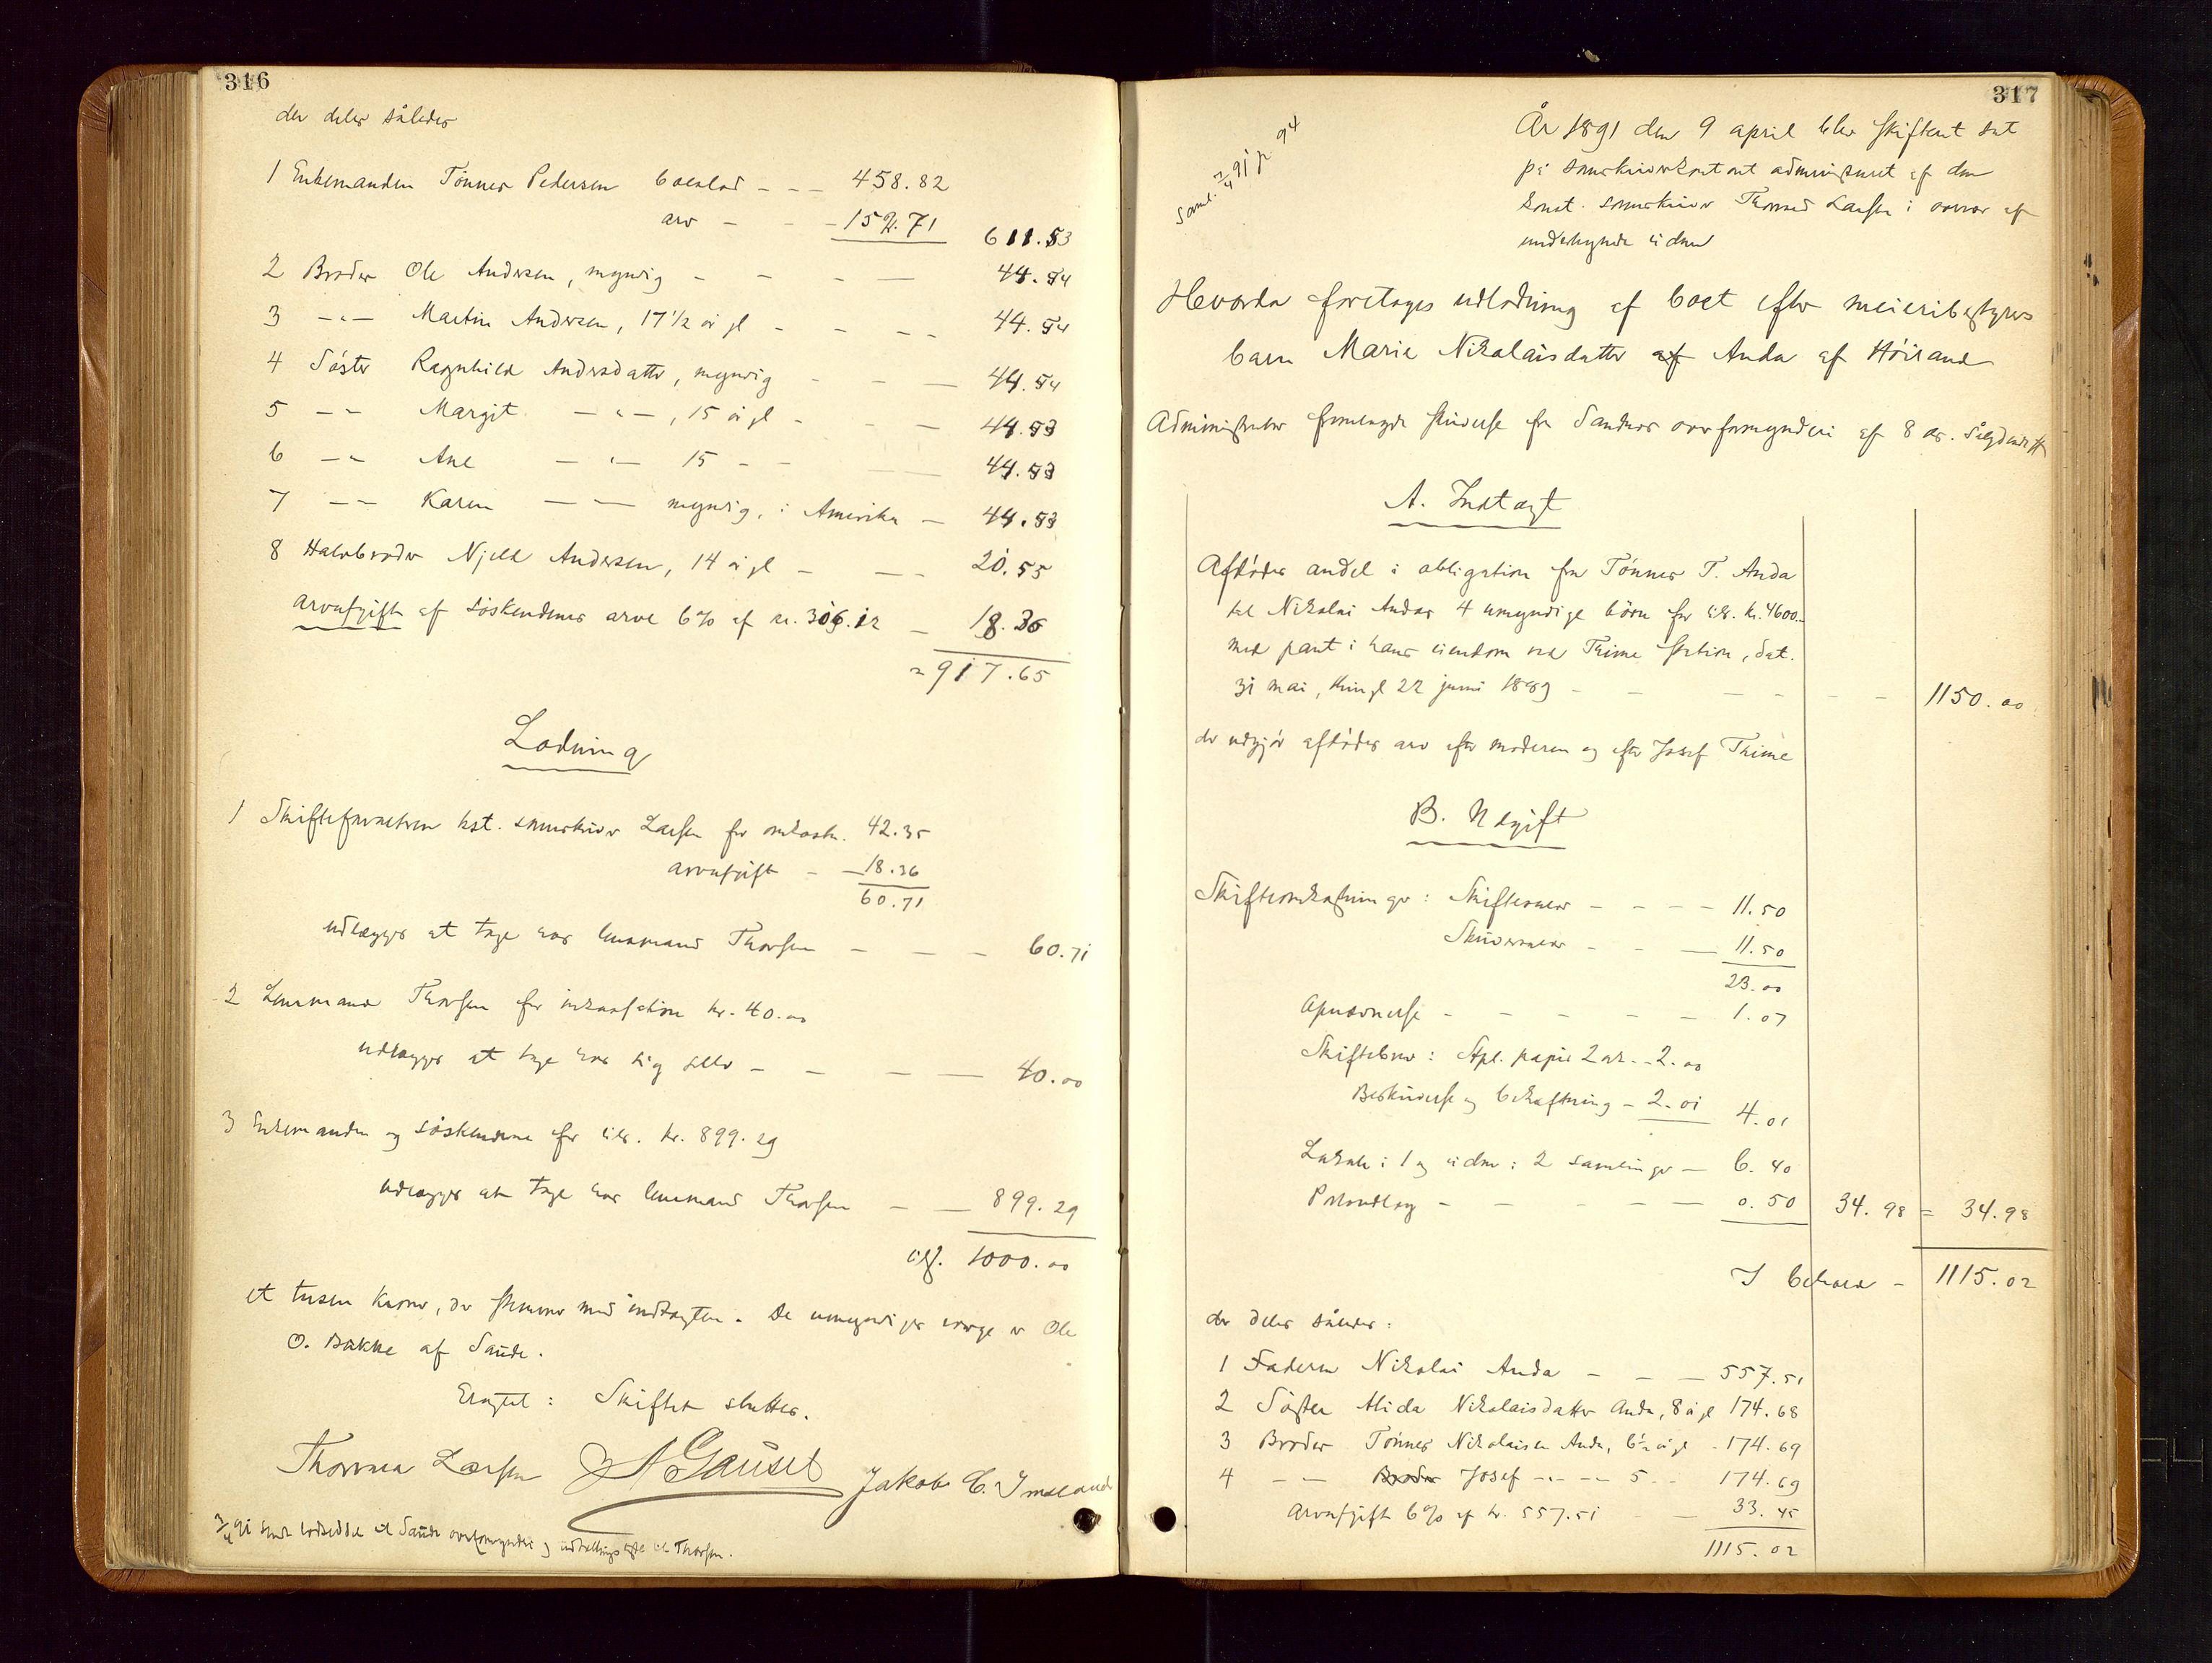 316
der deles således
1 Enkemanden Tönnes Pedersen boeslod - - - 458.82
arv - - - 152.71 611.53
2 Broder Ole Andersen, myndig - - - - 44.54
3 -"- Martin Andersen, 17 1/2 år gl - - - - 44.54
4 Söster Ragnhild Andersdatter, myndig - - - 44.54
5 - - Margit -"-, 15 år gl - - - 44.53
6 - - Ane -"- 15 - - - - 44.53
7 - - Karen - - myndig, i Amerika - 44.53
8 Halvbroder Njeld Andersen, 14 år gl - - - 20.55
Arveafgift af söskendenes arve 6% af kr. 306.12 - 18.36
= 917.65
Lodning
1 Skifteforvalteren kst. sorenskriver Larsen for omkostn. 42.35
arveafgift - - 18.36
60.71
udlægges at tage hos lensmand Thorsen - - - 60.71
2 Lensmand Thorsen for inkassation kr. 40.00
udlægges at tage hos sig selv - - - - 40.00
3 Enkemanden og söskendene for tils. kr. 899.29
udlægges at tage hos lensmand Thorsen - - 899.29
tils. 1000.00
et tusen kroner, der stemmer med indtægten. De umyndiges værge er Ole
O. Bakke af Saude.
Eragtet: Skiftet sluttes.
Thomas Larsen A Gauset Jakob C. Imsland
3/4 91 sendt lodseddel til Saude overformynderi og udbetalingsliste til Thorsen.
317
Saml. 3/4 91 p 94
År 1891 den 9 april blev skifteret sat
på sorenskriverkontoret administreret af den
konst. sorenskriver Thomas Larsen i overvær af
underskrevne vidner
Hvorda foretages udlodning af boet efter meieribestyrers
barn Marie Nikolaisdatter af Anda af Höiland
Administrator fremlagde skrivelse fra Sandnes overformynderi af 8 ds.
A. Indtægt
Afdödes andel i obligation fra Tönnes T. Anda
til Nikolai Andas 4 umyndige börn for tils. kr. 4600.-
med pant i hans eiendom ved Thime station, dat.
31 mai, thingl 22 juni 1889 - - - - - - 1150.00
der udgjör afdödes arv efter moderen og efter Josef Thime
B. Udgift
Skifteomkostninger: Skiftesalær - - - - 11.50
Skriversalær - - - 11.50
23.00
Opnævnelse - - - - - 1.07
Skiftebrev: Stpl. papir 2 ark - 2.00
Beskrivelse og bekræftning - 2.01 4.01
Lokale i 1 og vidner i 2 samlinger - 6.40
Postudlæg - - - - - 0.50 34.98 = 34.98
I behold - 1115.02
der deles således:
1 Faderen Nikolai Anda - - - 557.51
2 Söster Alida Nikolaisdatter Anda, 8 år gl 174.68
3 Broder Tönnes Nikolaisen Anda, 6 1/2 år gl - 174.69
4 - - Broder Josef - - - - 5 - - 174.69
Arveafgift 6% af kr. 557.51 - - 33.45
1115.02